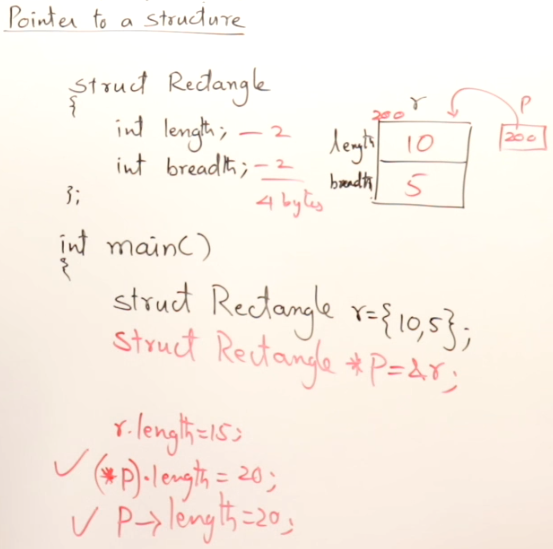 Pointer to a structure
struct Rectangle
{
int length; — 2
int breadth; — 2
4 bytes
};
r
200
length 10
breadth 5
P
200
int main()
{
struct Rectangle r={10,5};
struct Rectangle *P=&r;
r.length=15;
✓ (*P).length = 20;
✓ P->length=20;